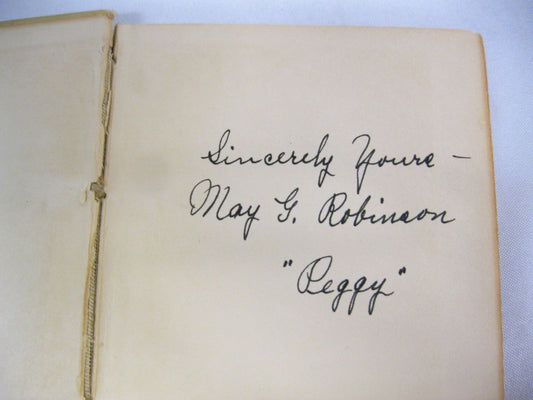 Sincerely Yours –
May G. Robinson
"Peggy"